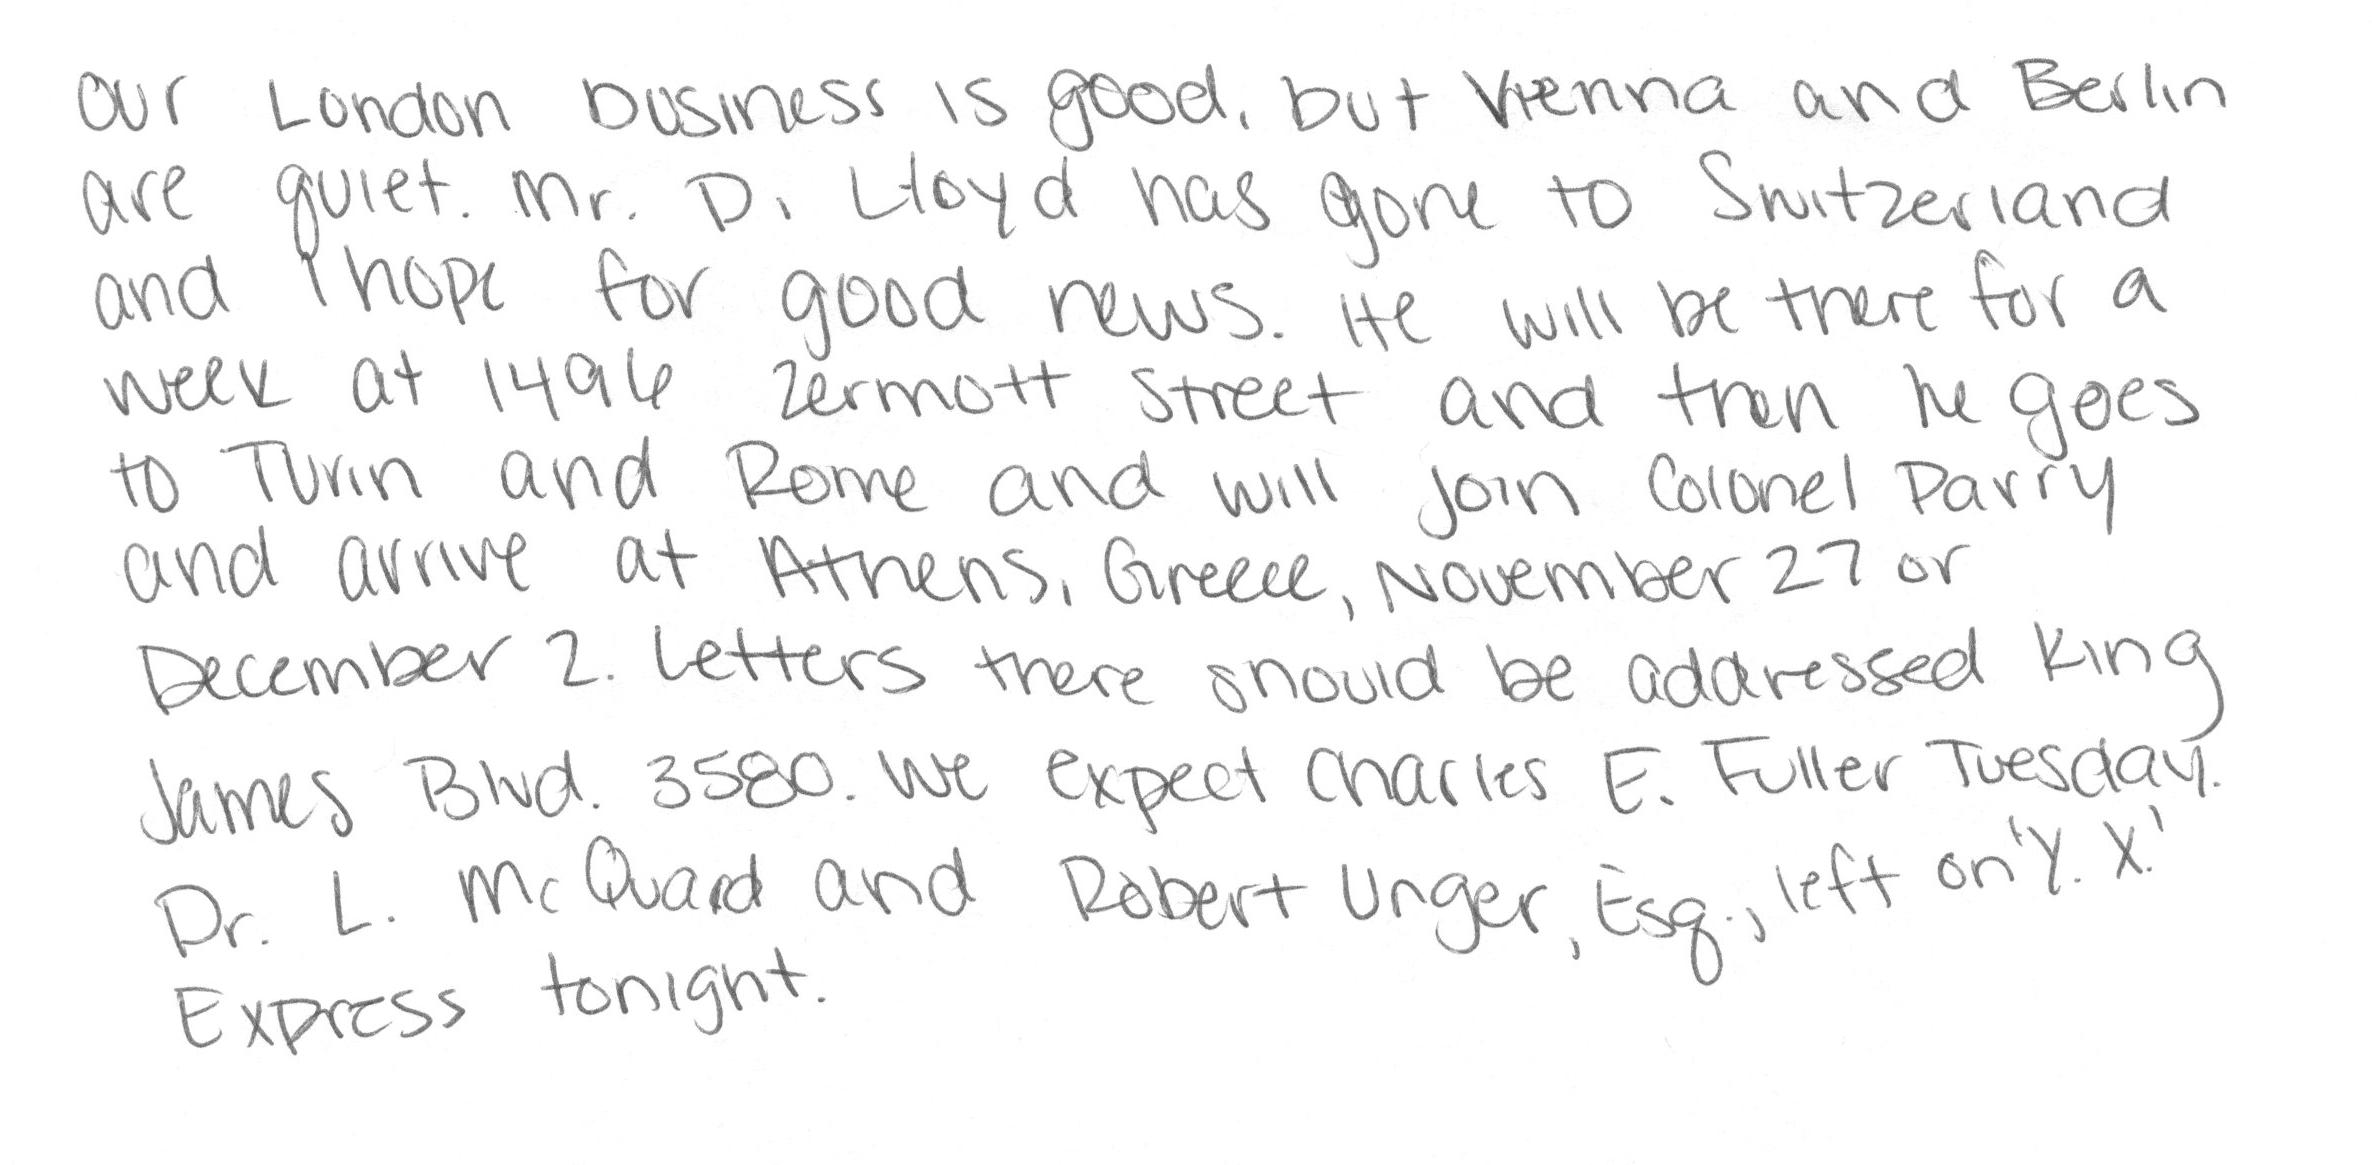 Our London business is good, but Vienna and Berlin
are quiet. Mr. D. Lloyd has gone to Switzerland
and I hope for good news. He will be there for a
week at 1496 Zermott Street and then he goes
to Turin and Rome and will join Colonel Parry
and arrive at Athens, Greece, November 27 or
December 2. Letters there should be addressed King
James Blvd. 3580. We expect Charles E. Fuller Tuesday.
Dr. L. McQuaid and Robert Unger, Esq., left on 'Y. X.'
Express tonight.